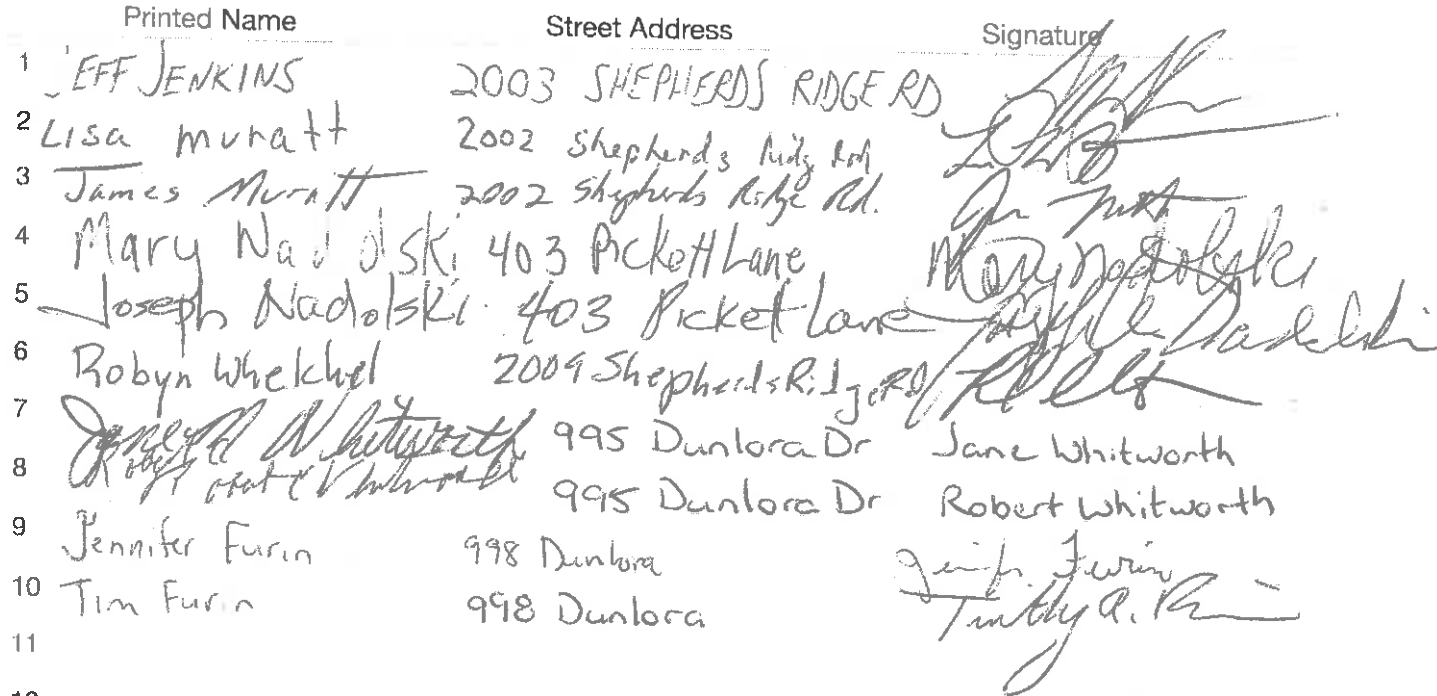 Printed Name Street Address Signature
1 JEFF JENKINS 2003 SHEPHERDS RIDGE RD
2 Lisa Muratt 2002 Shepherds Ridg
3 James Muratt 2002 Shepherds Ridge Rd.
4 Mary Nadolski 403 Pickett Lane Mary Nadolski
5 Joseph Nadolski 403 Picket Lane Nadolski
6 Robyn 2009 Shepherds Ridge RD
7 Whitworth 995 Dunlora Dr Jane Whitworth
8 995 Dunlora Dr Robert Whitworth
9 Jennifer Furin 998 Dunlora Furin
10 Tim Furin 998 Dunlora Timothy a.
11